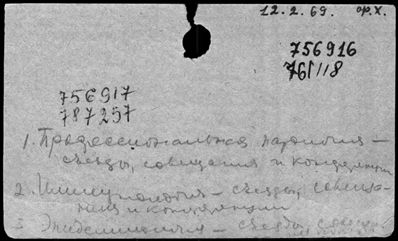 12.2.69. ор.х.
756916
761118
756917
787257
1. Профессиональная патология –
съезды, совещания и конференции
2. Иммунология – съезды, совещания
и конференции
3 Эпидемиология – съезды, совещ.